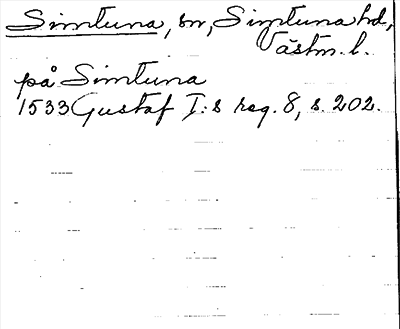 Simtuna, sn, Simtuna hd,
Västm. l.
på Simtuna
1533 Gustaf I:s reg. 8, s. 202.